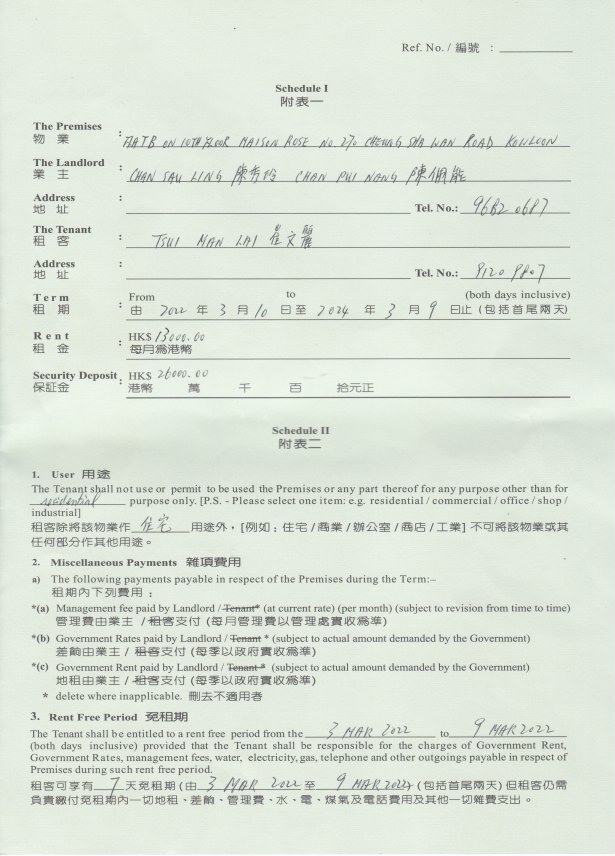 Ref. No. / 編號 :
Schedule I
附表一
The Premises
物 業 : FLAT B ON 10TH FLOOR MAISON ROSE NO. 270 CHEUNG SHA WAN ROAD KOWLOON
The Landlord
業 主 : CHAN SAU LING 陳秀玲 CHAN PUI NANG 陳佩能
Address :
地 址 Tel. No.: 9682 0687
The Tenant
租 客 : TSUI MAN LAI 崔文麗
Address :
地 址 Tel. No.: 9120 9807
Term From to (both days inclusive)
租 期 : 由 2022 年 3 月 10 日至 2024 年 3 月 9 日止 (包括首尾兩天)
Rent : HK$ 13000.00
租 金 每月為港幣
Security Deposit : HK$ 26000.00
保証金 港幣 萬 千 百 拾元正
Schedule II
附表二
1. User 用途
The Tenant shall not use or permit to be used the Premises or any part thereof for any purpose other than for
residential purpose only. [P.S. - Please select one item: e.g. residential / commercial / office / shop /
industrial]
租客除將該物業作 住宅 用途外，[例如：住宅 / 商業 / 辦公室 / 商店 / 工業] 不可將該物業或其
任何部分作其他用途。
2. Miscellaneous Payments 雜項費用
a) The following payments payable in respect of the Premises during the Term:–
租期內下列費用：
*(a) Management fee paid by Landlord / Tenant* (at current rate) (per month) (subject to revision from time to time)
管理費由業主 / 租客支付 (每月管理費以管理處實收為準)
*(b) Government Rates paid by Landlord / Tenant * (subject to actual amount demanded by the Government)
差餉由業主 / 租客支付 (每季以政府實收為準)
*(c) Government Rent paid by Landlord / Tenant * (subject to actual amount demanded by the Government)
地租由業主 / 租客支付 (每季以政府實收為準)
* delete where inapplicable. 刪去不適用者
3. Rent Free Period 免租期
The Tenant shall be entitled to a rent free period from the 3 MAR 2022 to 9 MAR 2022
(both days inclusive) provided that the Tenant shall be responsible for the charges of Government Rent,
Government Rates, management fees, water, electricity, gas, telephone and other outgoings payable in respect of
Premises during such rent free period.
租客可享有 7 天免租期 (由 3 MAR 2022 至 9 MAR 2022 (包括首尾兩天) 但租客仍需
負責繳付免租期內一切地租、差餉、管理費、水、電、煤氣及電話費用及其他一切雜費支出。